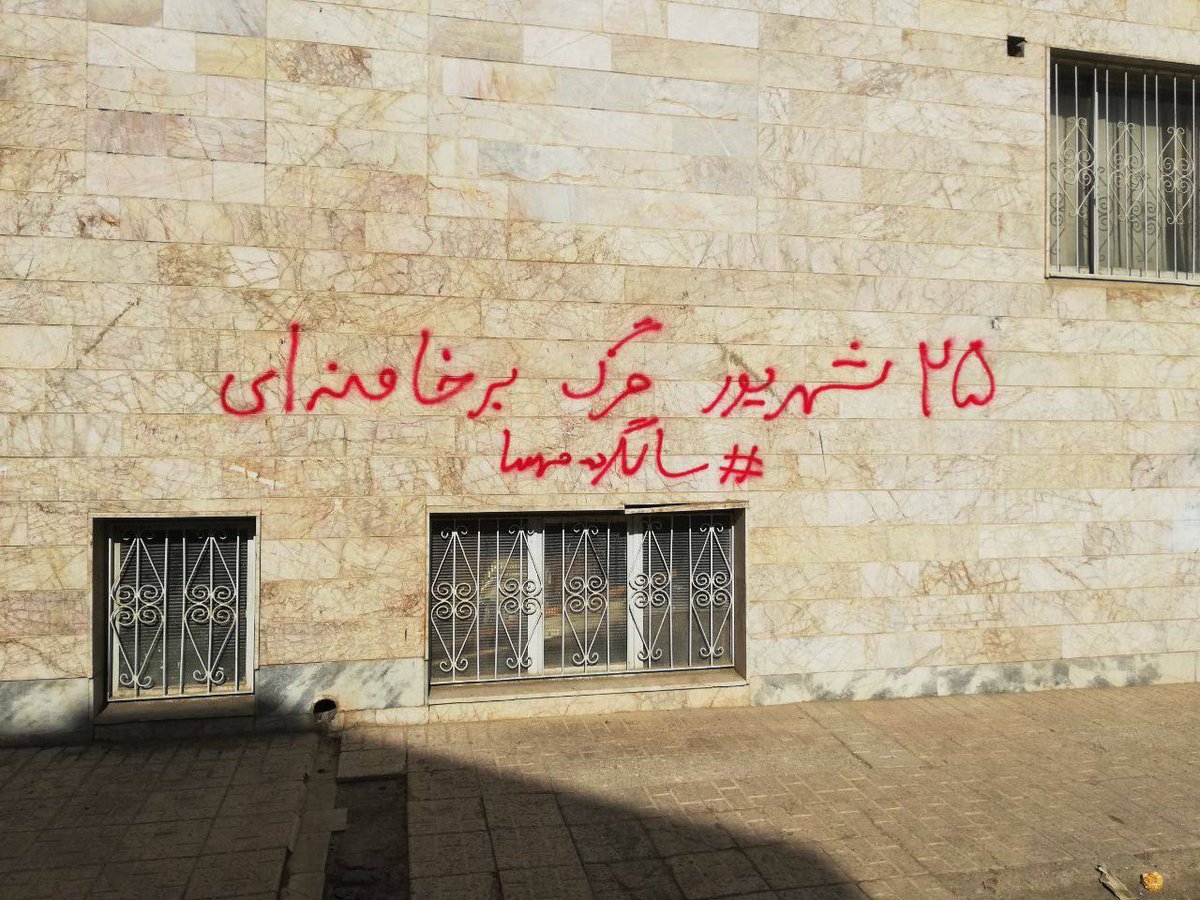 ۲۵ شهریور مرگ بر خامنه‌ای
#سالگرد_مهسا